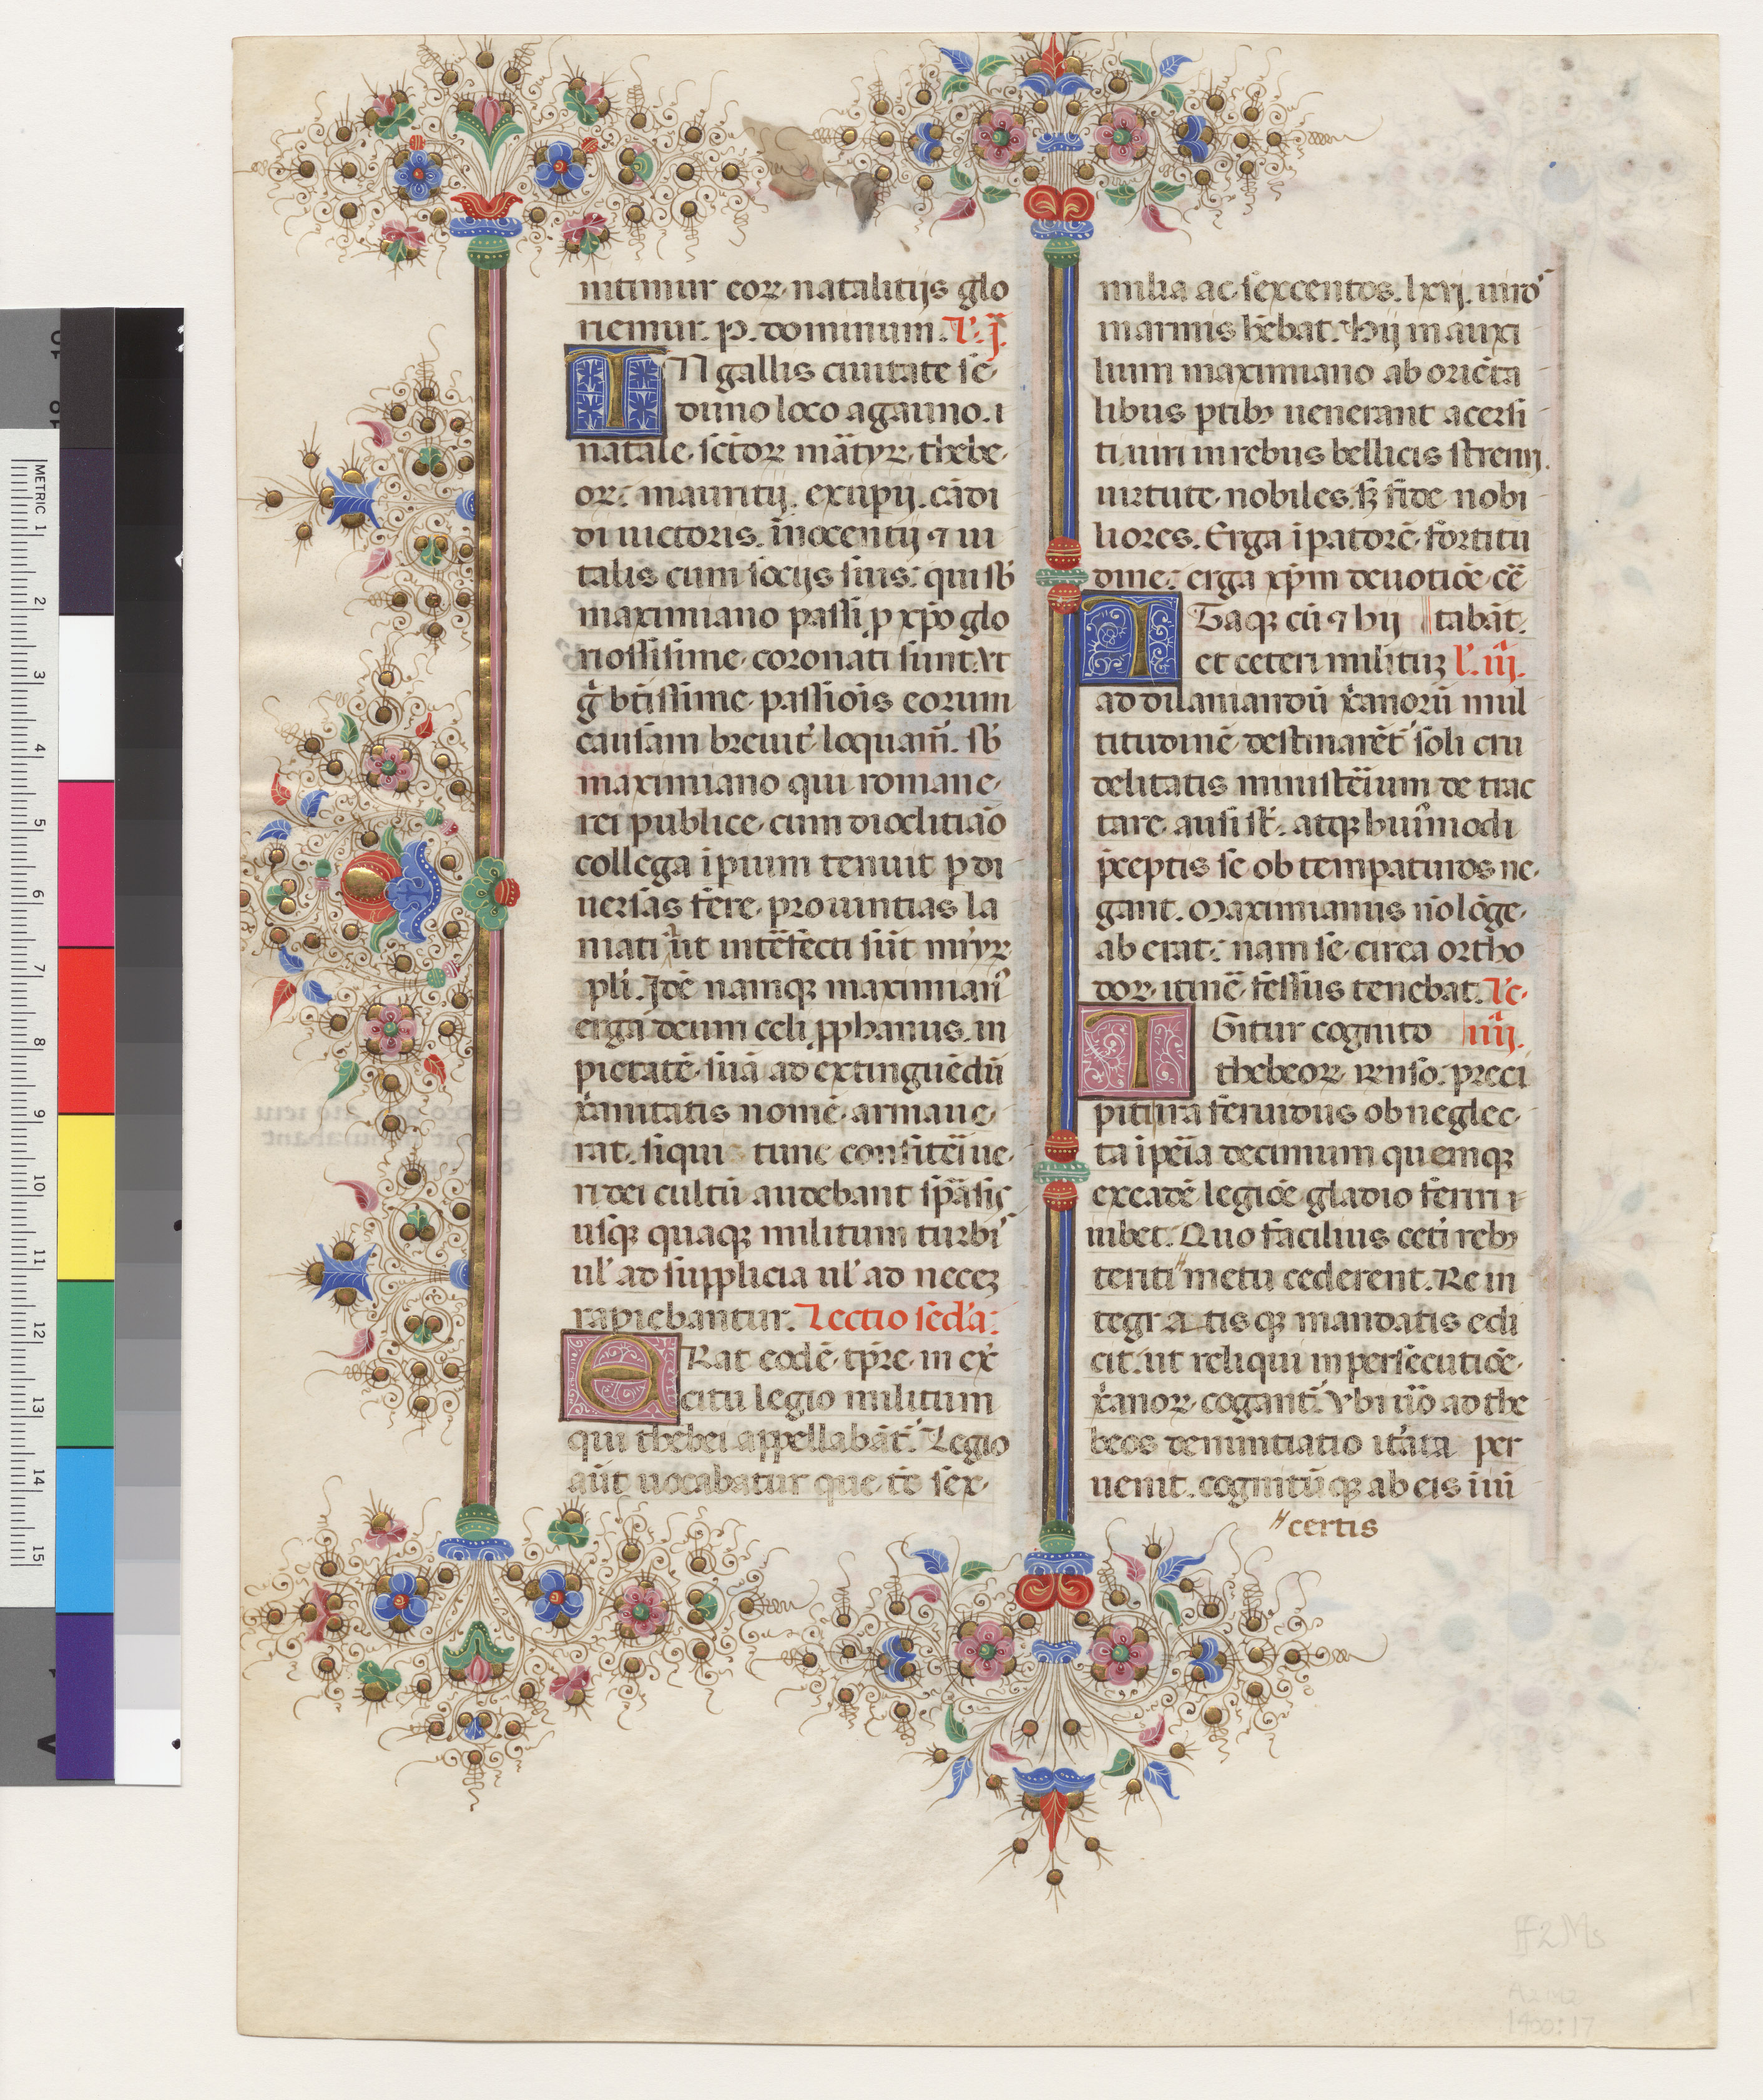 nitimur eoꝝ natalitijs glo
riemur. p. dominum. L'. j.
IN gallis ciuitate se
duno loco agauno. i
natale sctoꝝ mātyꝝ thebe
oꝝ: mauritij. exupij. cādi
di uictoris. inocentij ⁊ ui
talis cum socijs suis: qui sb
maximiano passi p xp̄o glo
riossisime coronati sunt. Vt
g btissime passiois eorum
causam breuit' loquam̄. sb
maximiano qui romane
rei publice cum dioclitiāo
collega ipium tenuit p di
uersas fere prouintias la
mati ut intēfecti sūt mr̄yꝝ
pli. Idē namqꝫ maximian9
erga deum celi pphanus. in
pietatē suā ad extinguēdū
xanitatis nomē armaue
rat. siqui tunc confitēi ue
ri dei cultū audebant spāsis
usqꝫ quaqꝫ militum turbis
ul' ad supplicia ul' ad necez
rapiebantur. Lectio sed'a:
ERat eodē tpre in ex
citu legio militum
qui thebei appellabāt. Legio
aūt uocabatur que tē sex
milia ac sexcentos. lxvj. uiros
in armis hēbat. Hij in auxi
lium maximiano ab oriēta
libus ptibꝫ uenerant acersi
ti. uiri in rebus bellicis strenuj.
uirtute nobiles. sꝫ fide nobi
liores. Erga ipatorē fortitu
dine: erga xp̄m deuotiōe cē
ITaqꝫ cū ⁊ hij tabāt.
et ceteri militūꝫ L'. iij.
ad dilaniandū xanorū mul
titudinē destinarēt' soli cru
delitatis ministēium de trac
tare ausi st. atqꝫ huīmodi
pceptis se obtempaturos ne
gant. Maximianus nō lōge
ab erat: nam se circa octho
doꝝ itinē fessus tenebat. Le
IGitur cognito iiij.
thebeoꝝ rēnso. preci
piti ira feruidus ob neglec
ta ipēia decimum quemqꝫ
ex eadē legiōe gladio feriri
iubet. Quo facilius ceti rebꝫ
teriti metu cederent. Re in
tegratisqꝫ mandatis edi
cit. ut reliqui in persecutiōe
xanoꝝ cogant'. Vbi uo ad the
beos denuntiatio it'ata per
uenit. cognitūqꝫ ab eis iui
certis
METRIC 1 2 3 4 5 6 7 8 9 10 11 12 13 14 15